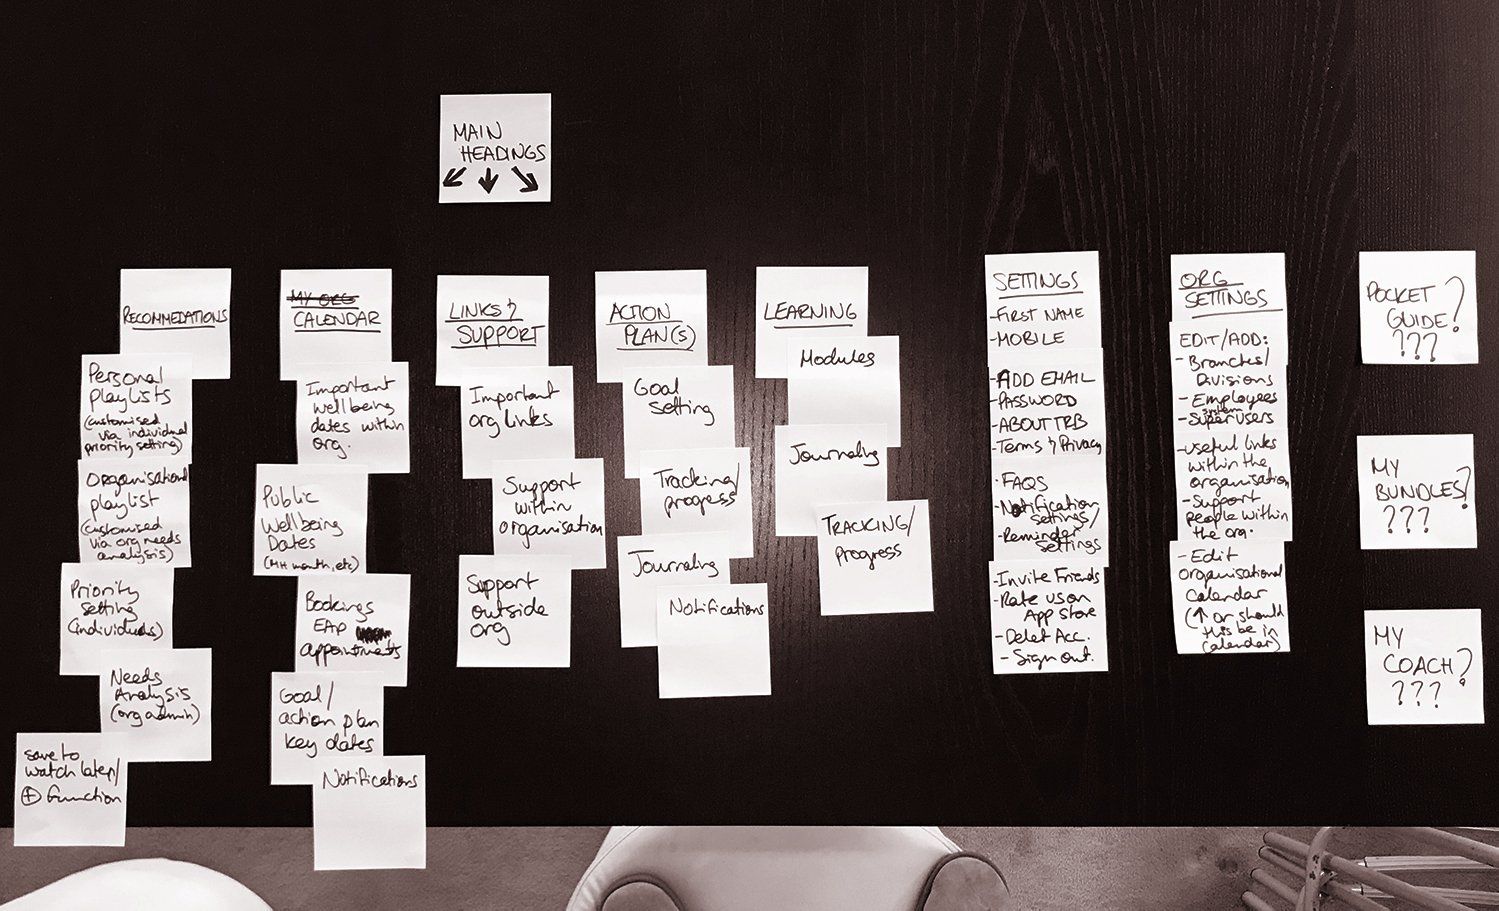 MAIN
HEADINGS
RECOMMEDATIONS
Personal
playlists
(customised
via individual
priority setting)
Organisational
playlist
(customised
via org needs
analysis)
Priority
setting
(individuals)
Needs
Analysis
(org admin)
save to
watch later/
+ function
MY ORG
CALENDAR
Important
wellbeing
dates within
org.
Public
Wellbeing
Dates
(MH month, etc)
Bookings
EAP
appointments
Goal/
action plan
key dates
Notifications
LINKS &
SUPPORT
Important
org links
Support
within
organisation
Support
outside
org
ACTION
PLAN(S)
Goal
setting
Tracking/
progress
Journaling
Notifications
LEARNING
Modules
Journaling
TRACKING/
progress
SETTINGS
- FIRST NAME
- MOBILE
- ADD EMAIL
- PASSWORD
- ABOUT TRB
- Terms & Privacy
- FAQS
- Notification
settings/
- Reminder
settings
- Invite Friends
- Rate us on
App store
- Delet Acc.
- Sign out.
ORG
SETTINGS
EDIT/ADD:
- Branches/
Divisions
- Employees
- Super users
- useful links
within the
organisation
- Support
people within
the org.
- Edit
organisational
calendar
(↑ or should
this be in
calendar)
POCKET
GUIDE?
???
MY
BUNDLES?
???
MY
COACH?
???